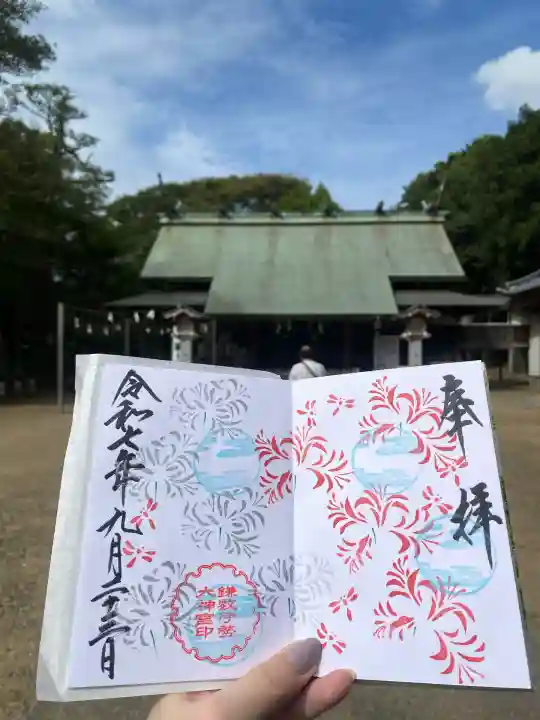 奉拝
令和七年九月二十三日
鎌数伊勢
大神宮印